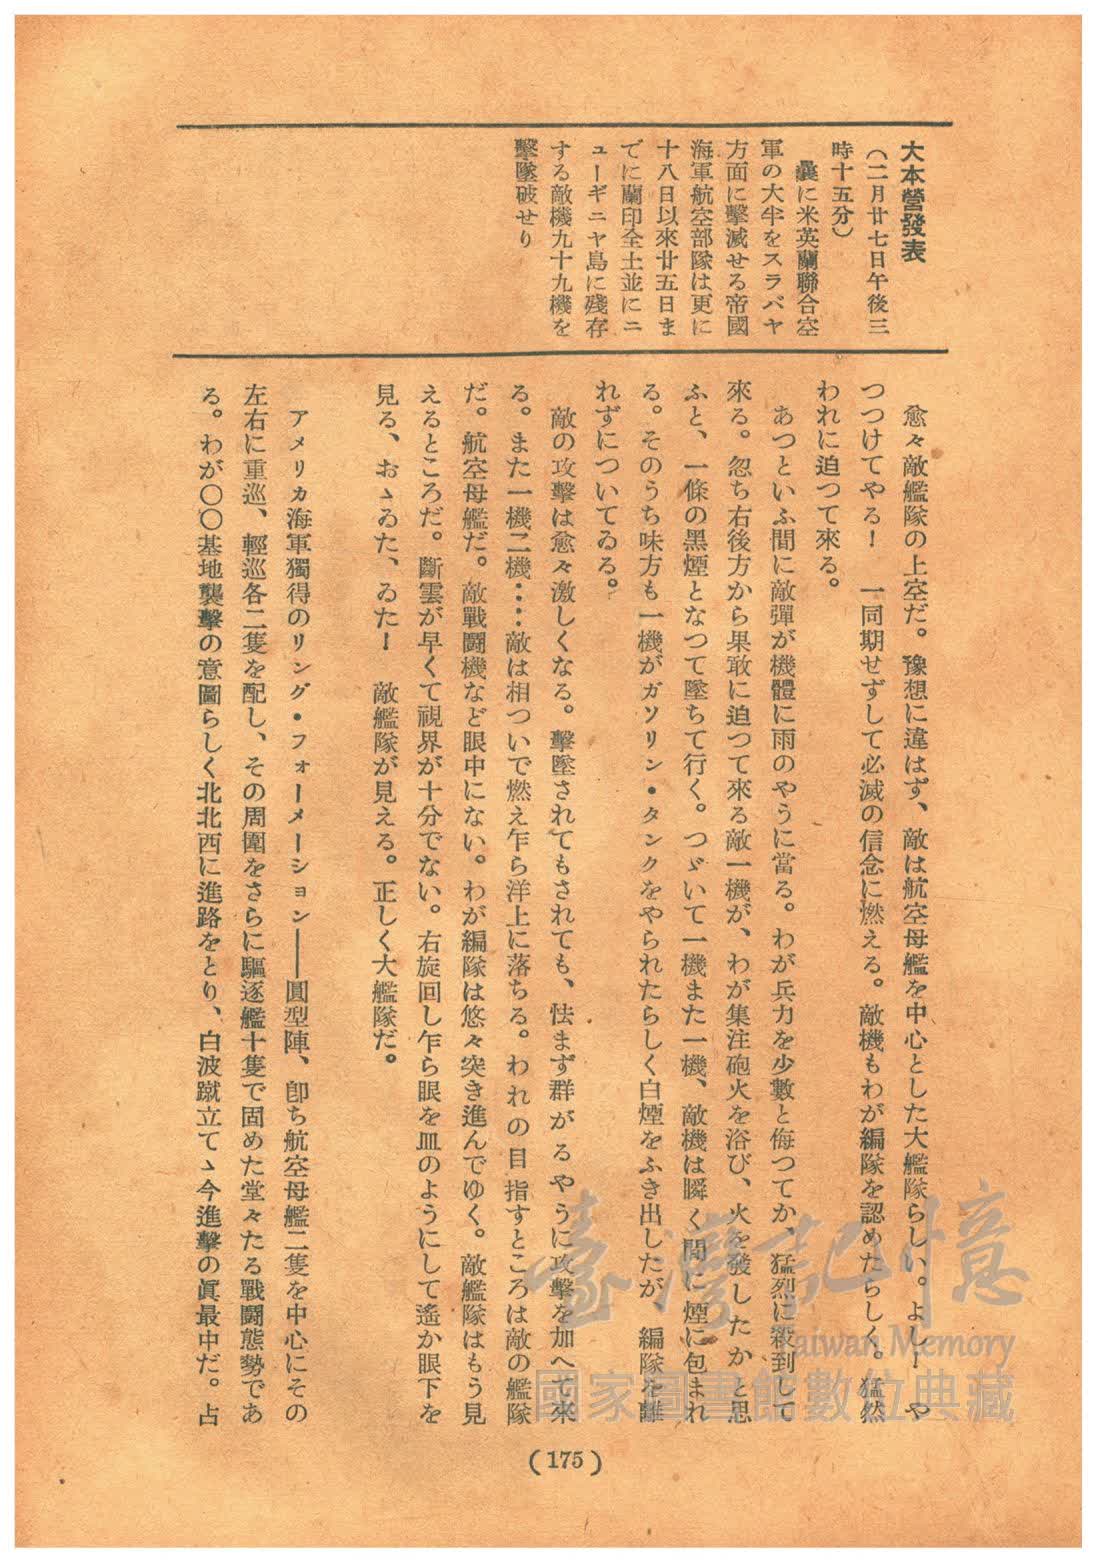 大本營發表
(二月廿七日午後三
時十五分)
曩に米英蘭聯合空
軍の大半をスラバヤ
方面に擊滅せる帝國
海軍航空部隊は更に
十八日以來廿五日ま
でに蘭印全土並にニ
ューギニヤ島に殘存
する敵機九十九機を
擊墜破せり
愈々敵艦隊の上空だ。豫想に違はず、敵は航空母艦を中心とした大艦隊らしい。よしー や
つつけてやる! 一同期せずして必滅の信念に燃える。敵機もわが編隊を認めたらしく。猛然
われに迫つて來る。
あつといふ間に敵彈が機體に雨のやうに當る。わが兵力を少數と侮つてか、猛烈に殺到して
來る。忽ち右後方から果敢に迫つて來る敵一機が、わが集注砲火を浴び、火を發したかと思
ふと、一條の黑煙となつて墜ちて行く。つゞいて一機また一機、敵機は瞬く間に煙に包まれ
る。そのうち味方も一機がガソリン・タンクをやられたらしく白煙をふき出したが 編隊を離
れずについてゐる。
敵の攻擊は愈々激しくなる。擊墜されてもされても、怯まず群がるやうに攻擊を加へて來
る。また一機二機‥‥敵は相ついで燃え乍ら洋上に落ちる。われの目指すところは敵の艦隊
だ。航空母艦だ。敵戰鬪機など眼中にない。わが編隊は悠々突き進んでゆく。敵艦隊はもう見
えるところだ。斷雲が早くて視界が十分でない。右旋回し乍ら眼を皿のようにして遙か眼下を
見る、おゝゐた、ゐたー 敵艦隊が見える。正しく大艦隊だ。
アメリカ海軍獨得のリング・フォーメーション――圓型陣、卽ち航空母艦二隻を中心にその
左右に重巡、輕巡各二隻を配し、その周圍をさらに驅逐艦十隻で固めた堂々たる戰鬪態勢であ
る。わが〇〇基地襲擊の意圖らしく北北西に進路をとり、白波蹴立てゝ今進擊の眞最中だ。占
(175)
臺灣記憶
Taiwan Memory
國家圖書館數位典藏